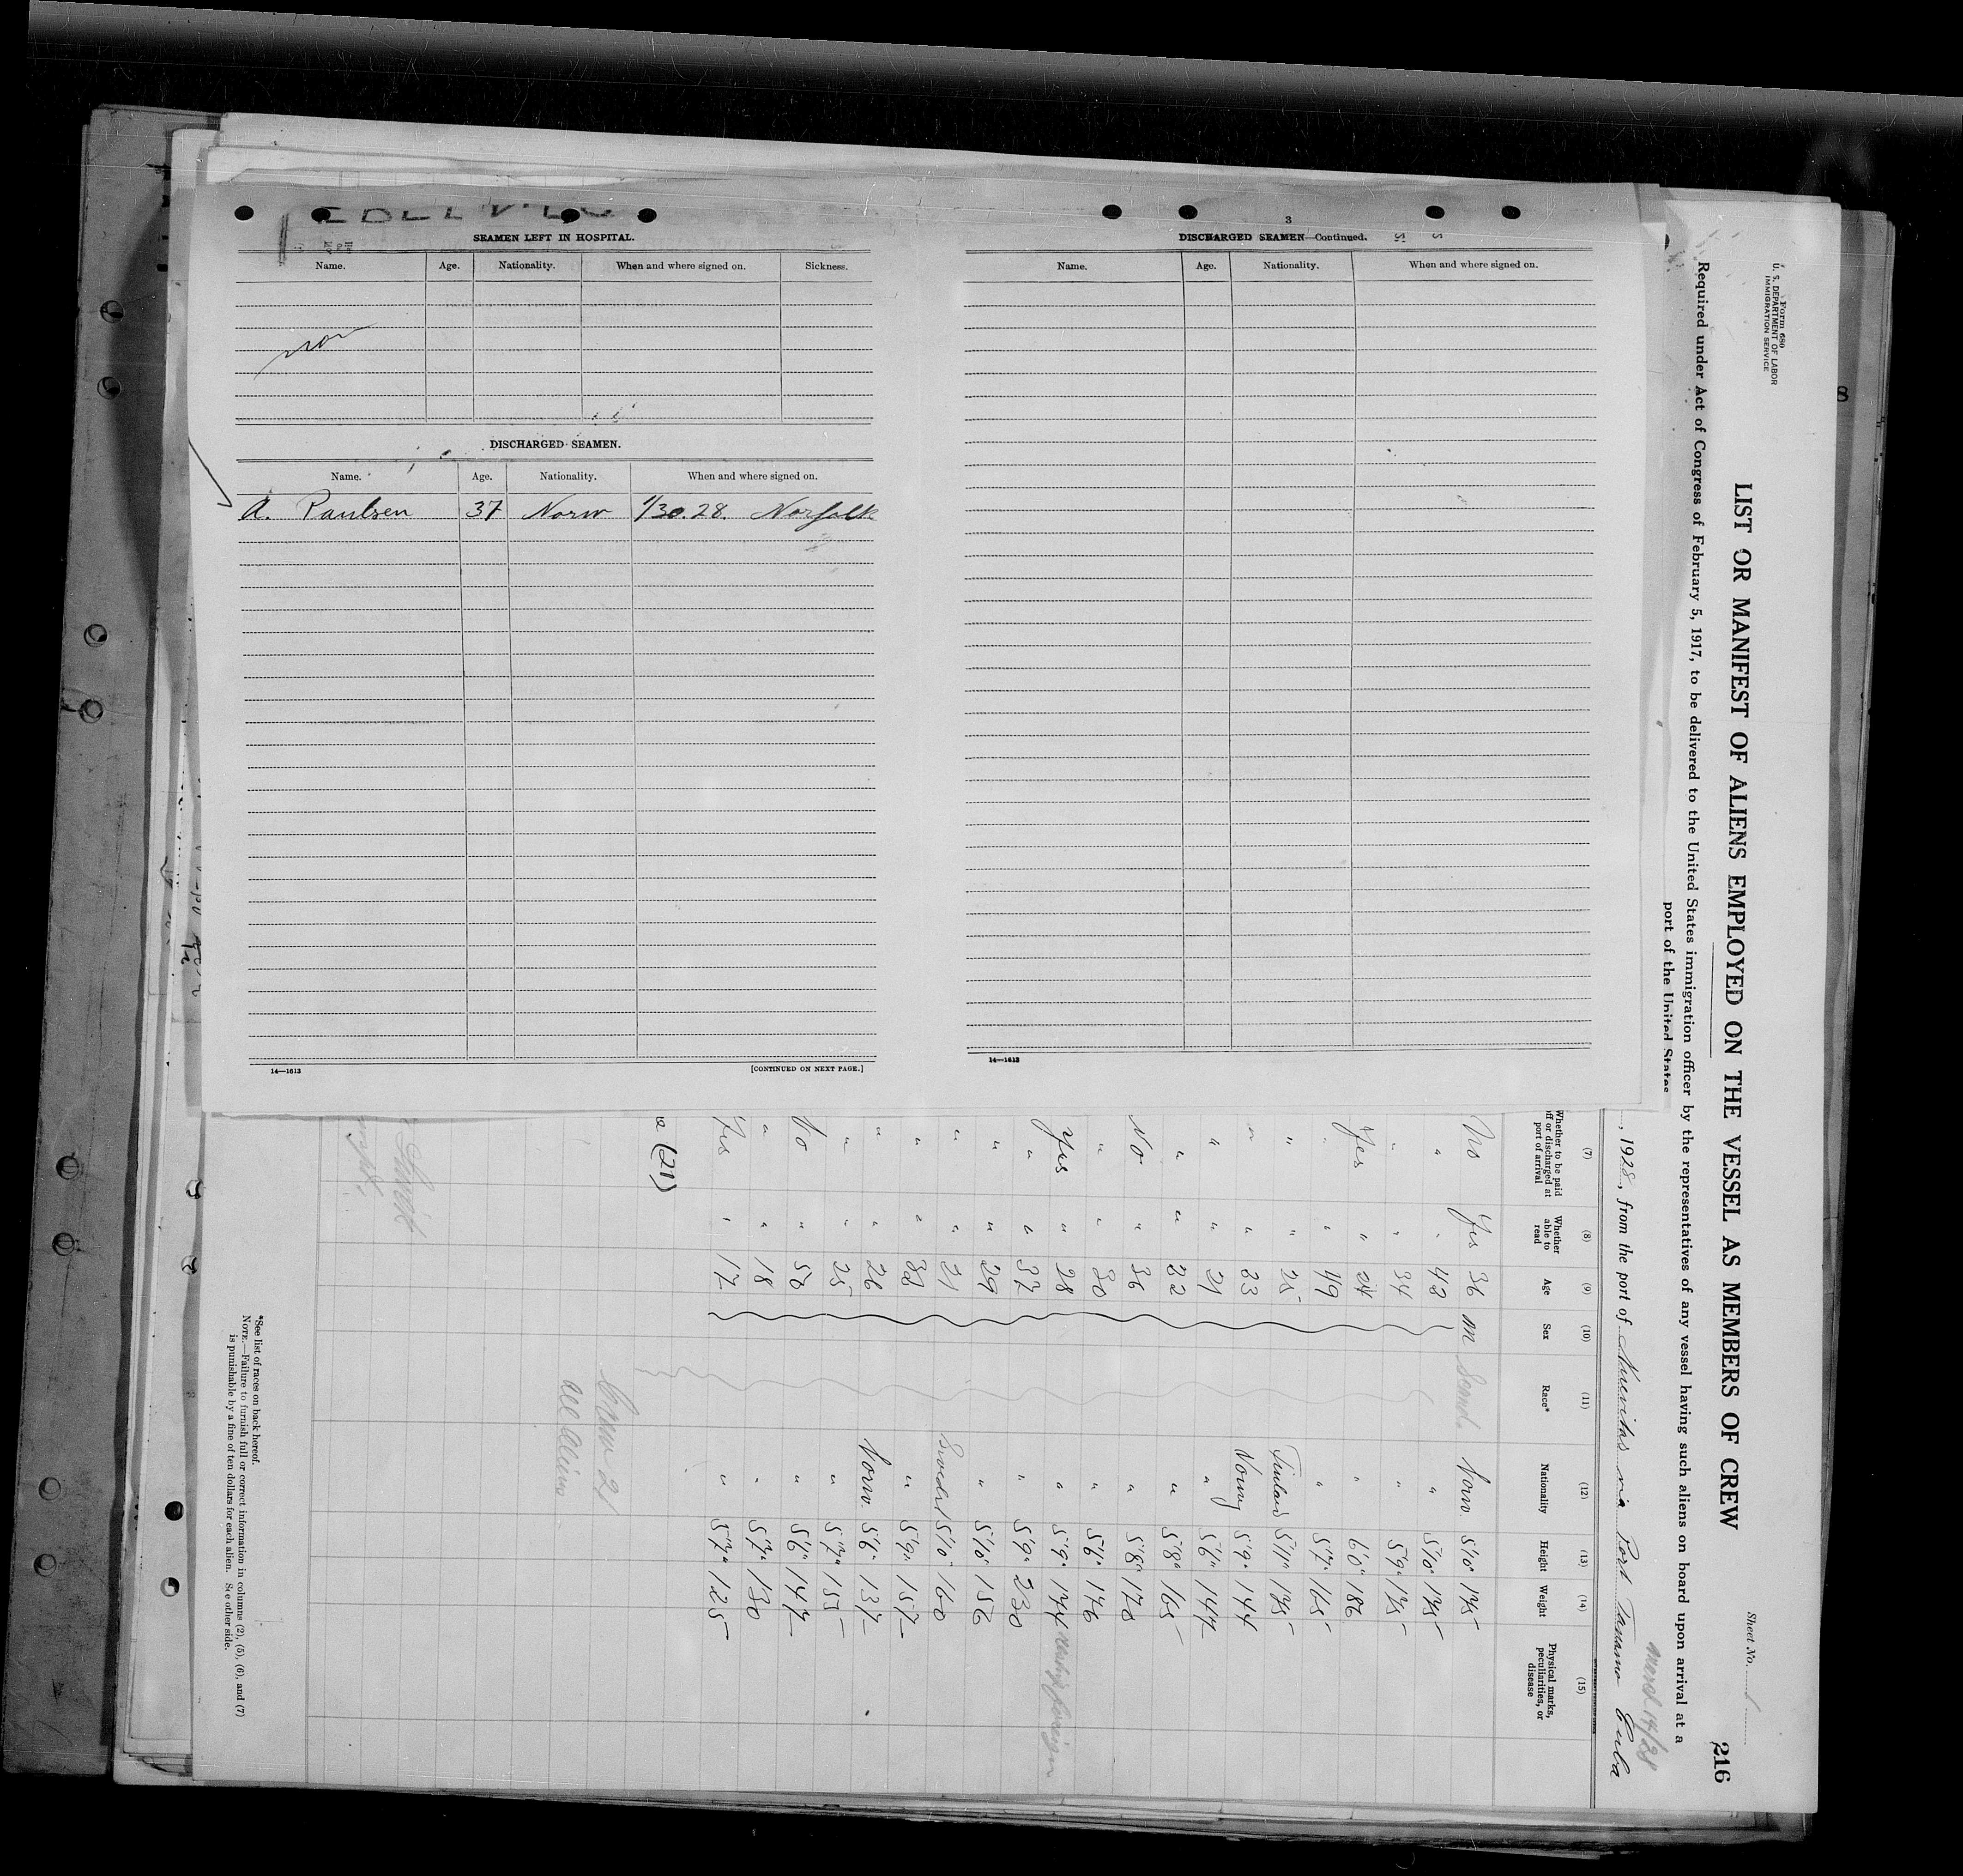 SEAMEN LEFT IN HOSPITAL.
Name. Age. Nationality. When and where signed on. Sickness.
non
DISCHARGED SEAMEN.
Name. Age. Nationality. When and where signed on.
A. Paulsen 37 Norw 1/30.28. Norfolk
14—1613 [CONTINUED ON NEXT PAGE.]
3
DISCHARGED SEAMEN—Continued.
Name. Age. Nationality. When and where signed on.
14—1613
Form 680
U. S. DEPARTMENT OF LABOR
IMMIGRATION SERVICE
Sheet No. 1
216
LIST OR MANIFEST OF ALIENS EMPLOYED ON THE VESSEL AS MEMBERS OF CREW
Required under Act of Congress of February 5, 1917, to be delivered to the United States immigration officer by the representatives of any vessel having such aliens on board upon arrival at a
port of the United States
March 14/28
, 1928, from the port of Nuevitas via Port Tanamo Cuba
(7) (8) (9) (10) (11) (12) (13) (14) (15)
Whether to be paid off or discharged at port of arrival Whether able to read Age Sex Race* Nationality Height Weight Physical marks, peculiarities, or disease
No Yes 36 m Scand. Norw. 5'10" 175
" " 42 " 5'10" 175
" " 34 " 5'9" 175
Yes " 24 " 6'0" 186
" " 49 " 5'7" 165
" " 25 Finland 5'11" 175
" " 23 Norwg 5'9" 144
" " 21 " 5'6" 147
" " 22 " 5'8" 165
No " 36 " 5'8" 178
" " 30 " 5'6" 176
Yes " 28 " 5'9" 174
" " 37 " 5'9" 230
" " 29 " 5'10" 156
" " 21 Sweden 5'10" 160
" " 32 " 5'9" 157
" " 26 Norw. 5'6" 137
" " 25 " 5'7" 155
No " 56 " 5'6" 147
" " 18 " 5'7" 130
Yes " 17 " 5'7" 125
(21)
Crew 21
all aliens
*See list of races on back hereof.
NOTE.—Failure to furnish full or correct information in columns (2), (5), (6), and (7)
is punishable by a fine of ten dollars for each alien. See other side.